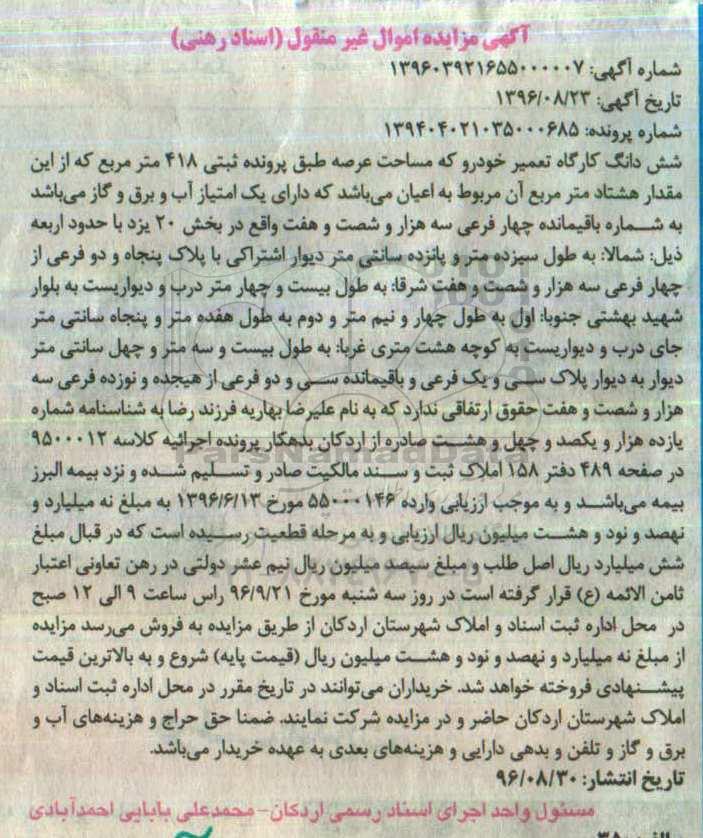 آگهی مزایده اموال غیر منقول (اسناد رهنی)
شماره آگهی: ۱۳۹۶۰۳۹۲۱۶۵۵۰۰۰۰۰۷
تاریخ آگهی: ۱۳۹۶/۰۸/۲۳
شماره پرونده: ۱۳۹۴۰۴۰۲۱۰۳۵۰۰۰۶۸۵
شش دانگ کارگاه تعمیر خودرو که مساحت عرصه طبق پرونده ثبتی ۴۱۸ متر مربع که از این
مقدار هشتاد متر مربع آن مربوط به اعیان می‌باشد که دارای یک امتیاز آب و برق و گاز می‌باشد
به شماره باقیمانده چهار فرعی سه هزار و شصت و هفت واقع در بخش ۲۰ یزد با حدود اربعه
ذیل: شمالا: به طول سیزده متر و پانزده سانتی متر دیوار اشتراکی با پلاک پنجاه و دو فرعی از
چهار فرعی سه هزار و شصت و هفت شرقا: به طول بیست و چهار متر درب و دیواریست به بلوار
شهید بهشتی جنوبا: اول به طول چهار و نیم متر و دوم به طول هفده متر و پنجاه سانتی متر
جای درب و دیواریست به کوچه هشت متری غربا: به طول بیست و سه متر و چهل سانتی متر
دیوار به دیوار پلاک سی و یک فرعی و باقیمانده سی و دو فرعی از هیجده و نوزده فرعی سه
هزار و شصت و هفت حقوق ارتفاقی ندارد که به نام علیرضا بهاریه فرزند رضا به شناسنامه شماره
یازده هزار و یکصد و چهل و هشت صادره از اردکان بدهکار پرونده اجرائیه کلاسه ۹۵۰۰۰۱۲
در صفحه ۴۸۹ دفتر ۱۵۸ املاک ثبت و سند مالکیت صادر و تسلیم شده و نزد بیمه البرز
بیمه می‌باشد و به موجب ارزیابی وارده ۵۵۰۰۰۱۴۶ مورخ ۱۳۹۶/۶/۱۳ به مبلغ نه میلیارد و
نهصد و نود و هشت میلیون ریال ارزیابی و به مرحله قطعیت رسیده است که در قبال مبلغ
شش میلیارد ریال اصل طلب و مبلغ سیصد میلیون ریال نیم عشر دولتی در رهن تعاونی اعتبار
ثامن الائمه (ع) قرار گرفته است در روز سه شنبه مورخ ۹۶/۹/۲۱ راس ساعت ۹ الی ۱۲ صبح
در محل اداره ثبت اسناد و املاک شهرستان اردکان از طریق مزایده به فروش می‌رسد مزایده
از مبلغ نه میلیارد و نهصد و نود و هشت میلیون ریال (قیمت پایه) شروع و به بالاترین قیمت
پیشنهادی فروخته خواهد شد. خریداران می‌توانند در تاریخ مقرر در محل اداره ثبت اسناد و
املاک شهرستان اردکان حاضر و در مزایده شرکت نمایند. ضمنا حق حراج و هزینه‌های آب و
برق و گاز و تلفن و بدهی دارایی و هزینه‌های بعدی به عهده خریدار می‌باشد.
تاریخ انتشار: ۹۶/۰۸/۳۰
مسئول واحد اجرای اسناد رسمی اردکان- محمدعلی بابایی احمدآبادی